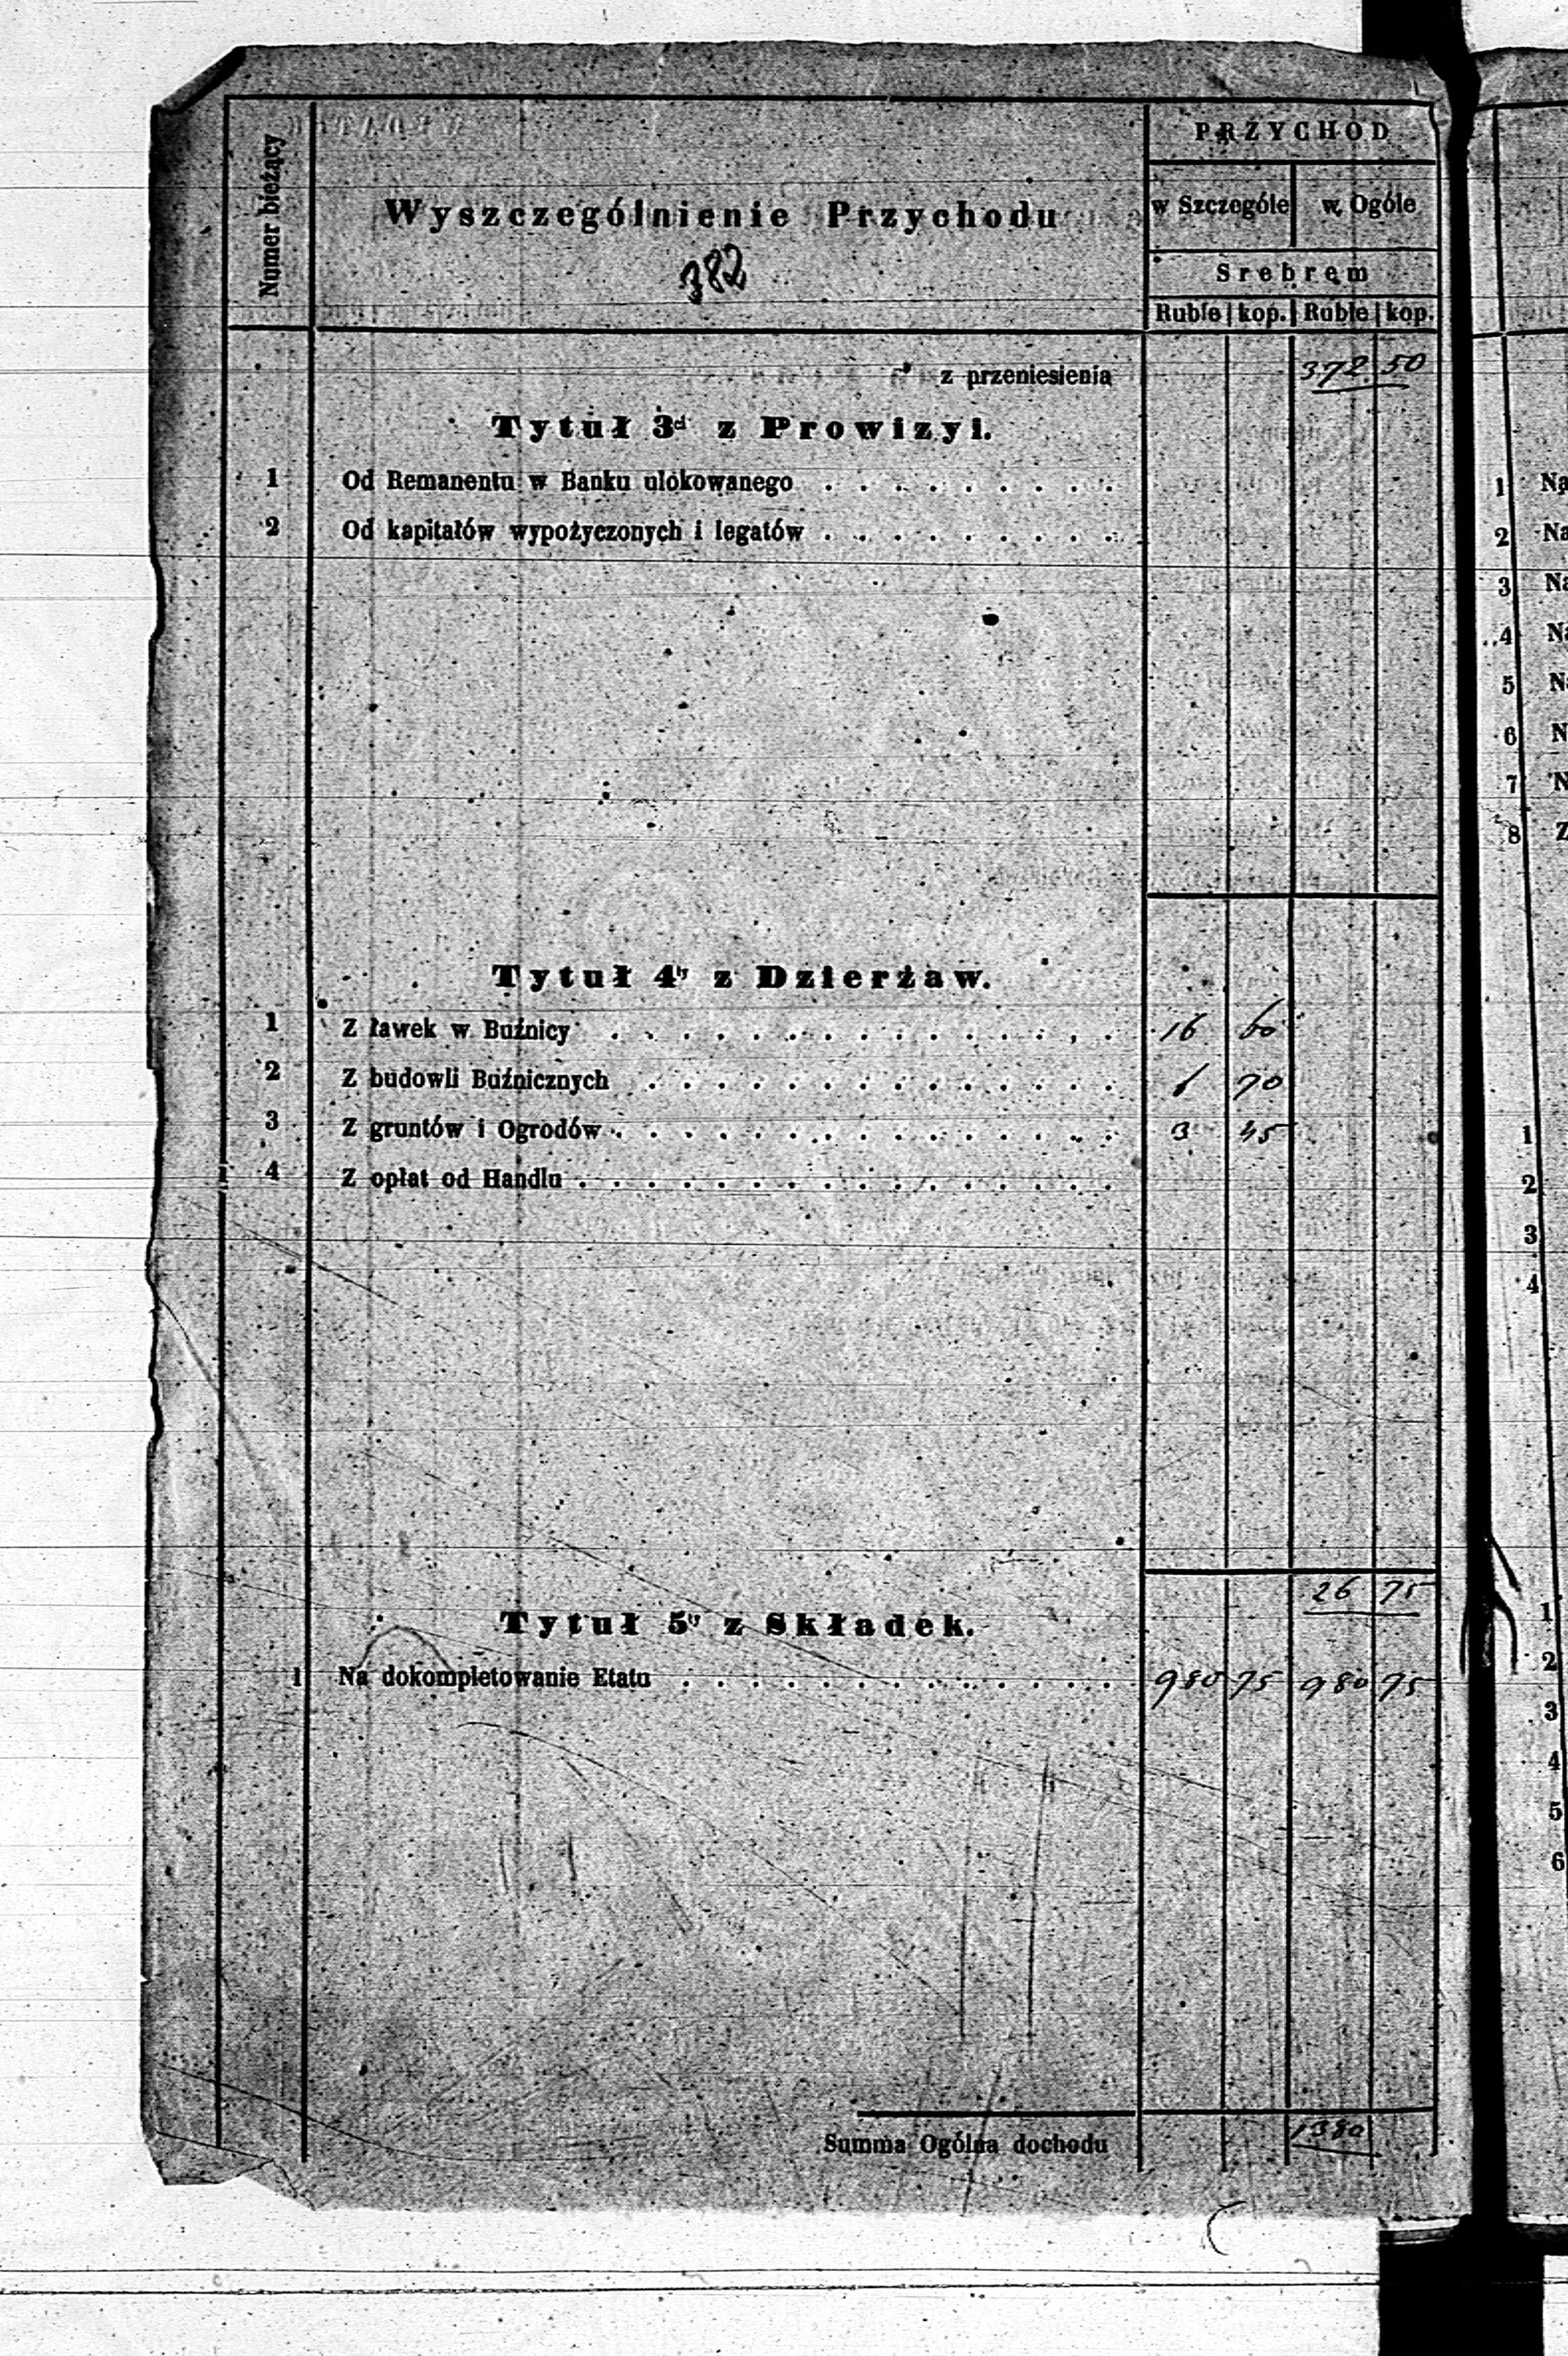 Numer bieżący
Wyszczególnienie Przychodu
382
PRZYCHOD
w Szczególe w Ogóle
Srebrem
Ruble kop. Ruble kop.
z przeniesienia 372 50
Tytuł 3ci z Prowizyi.
1 Od Remanentu w Banku ulokowanego . . . . . . . . .
2 Od kapitałów wypożyczonych i legatów . . . . . . . . .
Tytuł 4ty z Dzierżaw.
1 Z ławek w Buźnicy . . . . . . . . . . . . . . . 16 60
2 Z budowli Buźnicznych . . . . . . . . . . . . . . 6 70
3 Z gruntów i Ogrodów . . . . . . . . . . . . . . . 3 45
4 Z opłat od Handlu . . . . . . . . . . . . . . . .
26 75
Tytuł 5ty z Składek.
1 Na dokompletowanie Etatu . . . . . . . . . . . . . 980 75 980 75
Summa Ogólna dochodu 1380
1 Na
2 Na
3 Na
4 N
5 N
6 N
7 N
8 Z
1
2
3
4
1
2
3
4
5
6